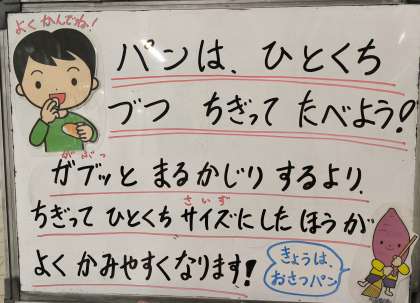 よくかんでね!
パンは、ひとくち
づつ ちぎって たべよう!
がぶっ
ガブッと まるかじり するより、
さいず
ちぎって ひとくち サイズに した ほうが
よく かみやすく なります!
きょうは、
おさつパン